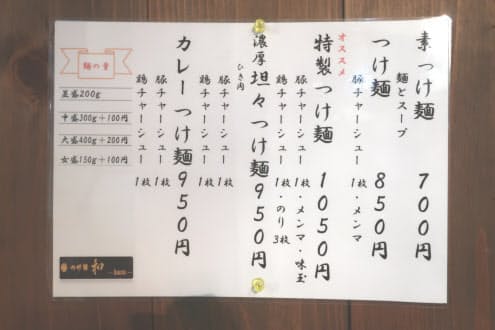 素つけ麺 700円
麺とスープ
つけ麺 850円
豚チャーシュー 1枚・メンマ
オススメ
特製つけ麺 1050円
豚チャーシュー 1枚・メンマ・味玉
鶏チャーシュー 1枚・のり 3枚
濃厚坦々つけ麺 950円
ひき肉
豚チャーシュー 1枚
鶏チャーシュー 1枚
カレーつけ麺 950円
豚チャーシュー 1枚
鶏チャーシュー 1枚
麺の量
並盛200g
中盛300g+100円
大盛400g+200円
女盛150g+100円
つけ麺 和
-kazu-